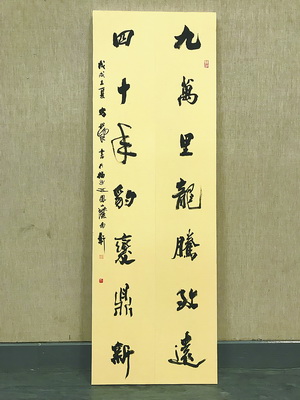 九萬里龍騰致遠
四十年豹變鼎新
戊戌之夏